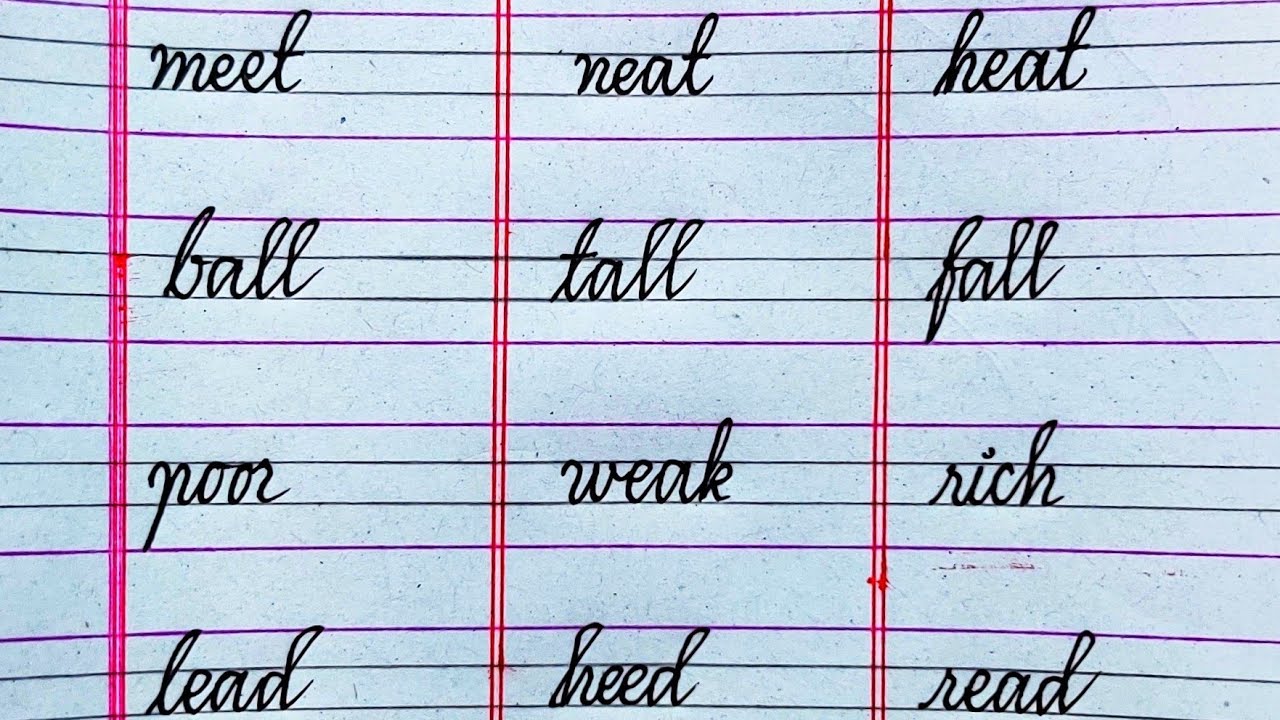 meet neat heat
ball tall fall
poor weak rich
lead heed read